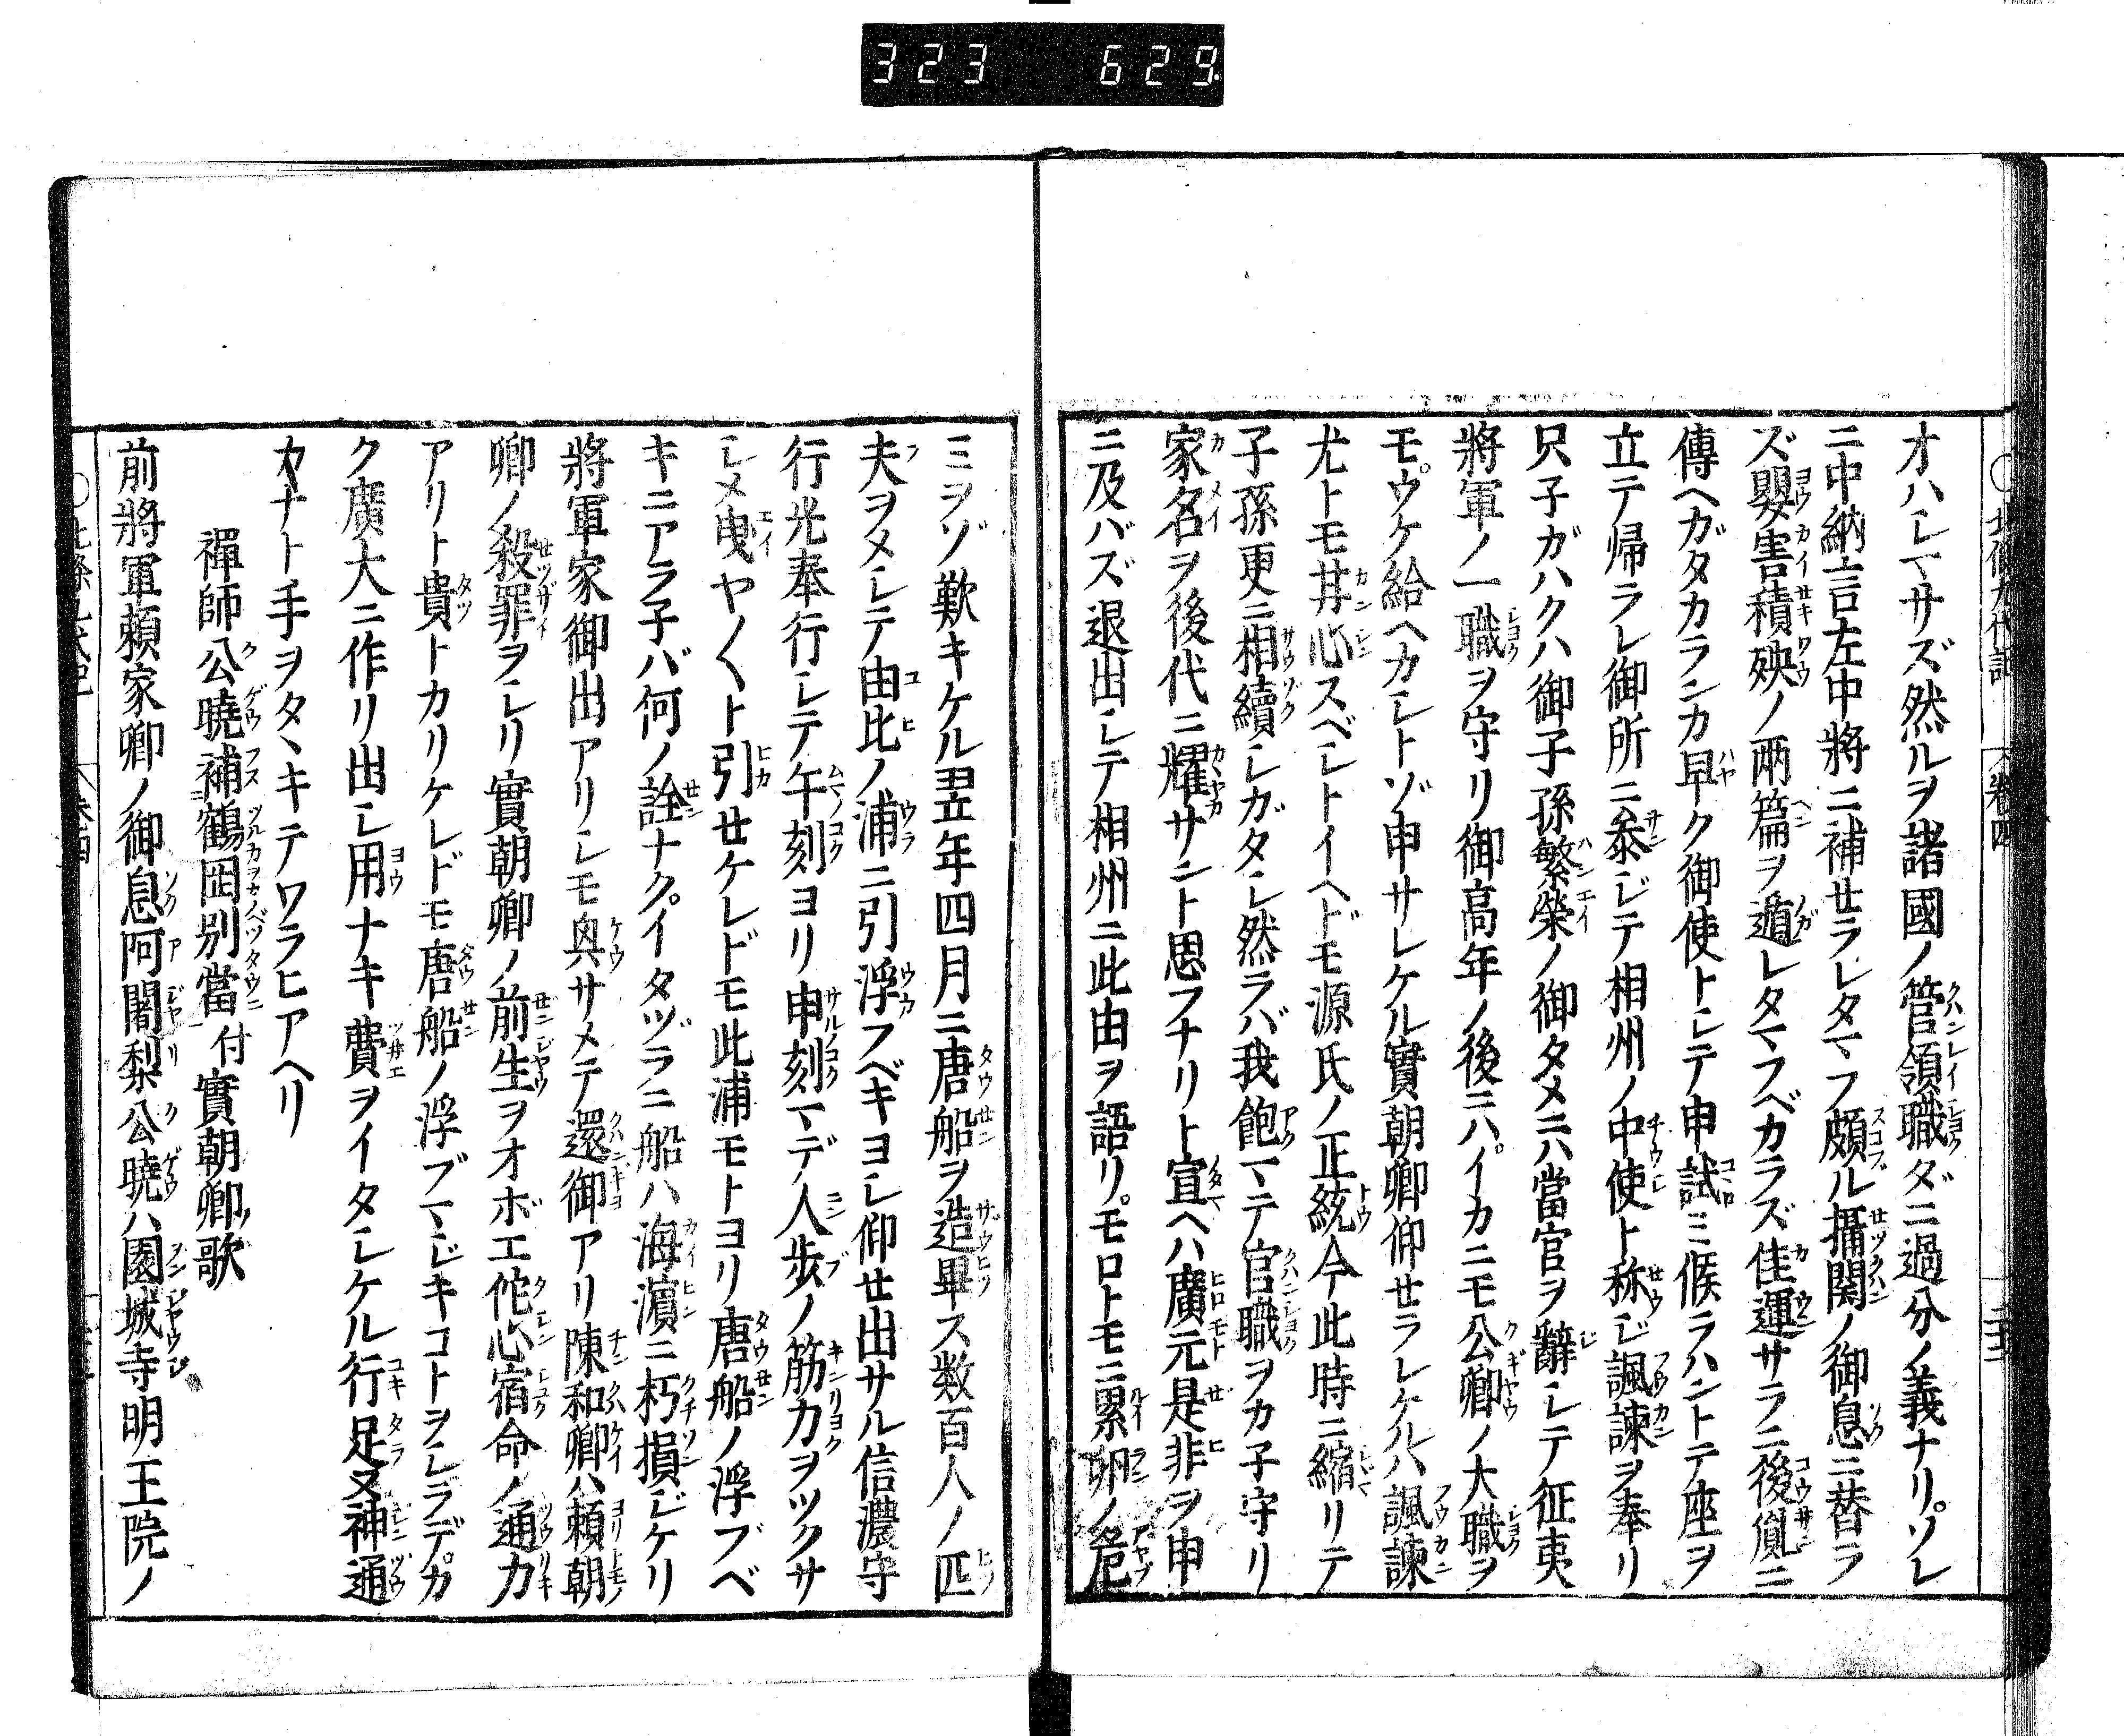 323 629
オハシマサズ然ルヲ諸國ノ管領職ダニ過分ノ義ナリソレ
ニ中納言左中將ニ補せラレタマフ頗ル攝関ノ御息ニ替ラ
ズ嬰害積殃ノ両篇ヲ遁レタマフベカラズ佳運サラニ後胤ニ
傳ヘガタカランカ早ク御使トシテ申試ミ候ラハントテ座ヲ
立テ帰ラレ御所ニ参ジテ相州ノ中使ト称ジ諷諫ヲ奉リ
只子ガハクハ御子孫繁榮ノ御タメニハ當官ヲ辭シテ征夷
將軍ノ一職ヲ守リ御高年ノ後ニハイカニモ公卿ノ大職ヲ
モウケ給ヘカシトゾ申サレケル實朝卿仰せラレケルハ諷諫
尤トモ甘心スベシトイヘドモ源氏ノ正統今此時ニ縮リテ
子孫更ニ相續シガタシ然ラバ我飽マテ官職ヲカ子守リ
家名ヲ後代ニ耀サント思フナリト宣ヘハ廣元是非ヲ申
ニ及バズ退出シテ相州ニ此由ヲ語リモロトモニ累卵ノ危
ミヲゾ歎キケル翌年四月ニ唐船ヲ造畢ス数百人ノ匹
夫ヲメシテ由比ノ浦ニ引浮フベキヨシ仰せ出サル信濃守
行光奉行シテ午刻ヨリ申刻マデノ人歩ノ筋力ヲツクサ
シメ曳ヤ〳〵ト引せケレドモ此浦モトヨリ唐船ノ浮ブベ
キニアラ子バ何ノ詮ナクイタヅラニ船ハ海濵ニ朽損ジケリ
將軍家御出アリシモ興サメテ還御アリ陳和卿ハ頼朝
卿ノ殺罪ヲシリ實朝卿ノ前生ヲオボエ佗心宿命ノ通力
アリト貴トカリケレドモ唐船ノ浮ブマジキコトヲシラデカ
ク廣大ニ作リ出シ用ナキ費ヲイタシケル行足又神通
カナト手ヲタヽキテワラヒアヘリ
禪師公曉補鶴岡別當付實朝卿歌
前將軍頼家卿ノ御息阿闍梨公曉ハ園城寺明王院ノ